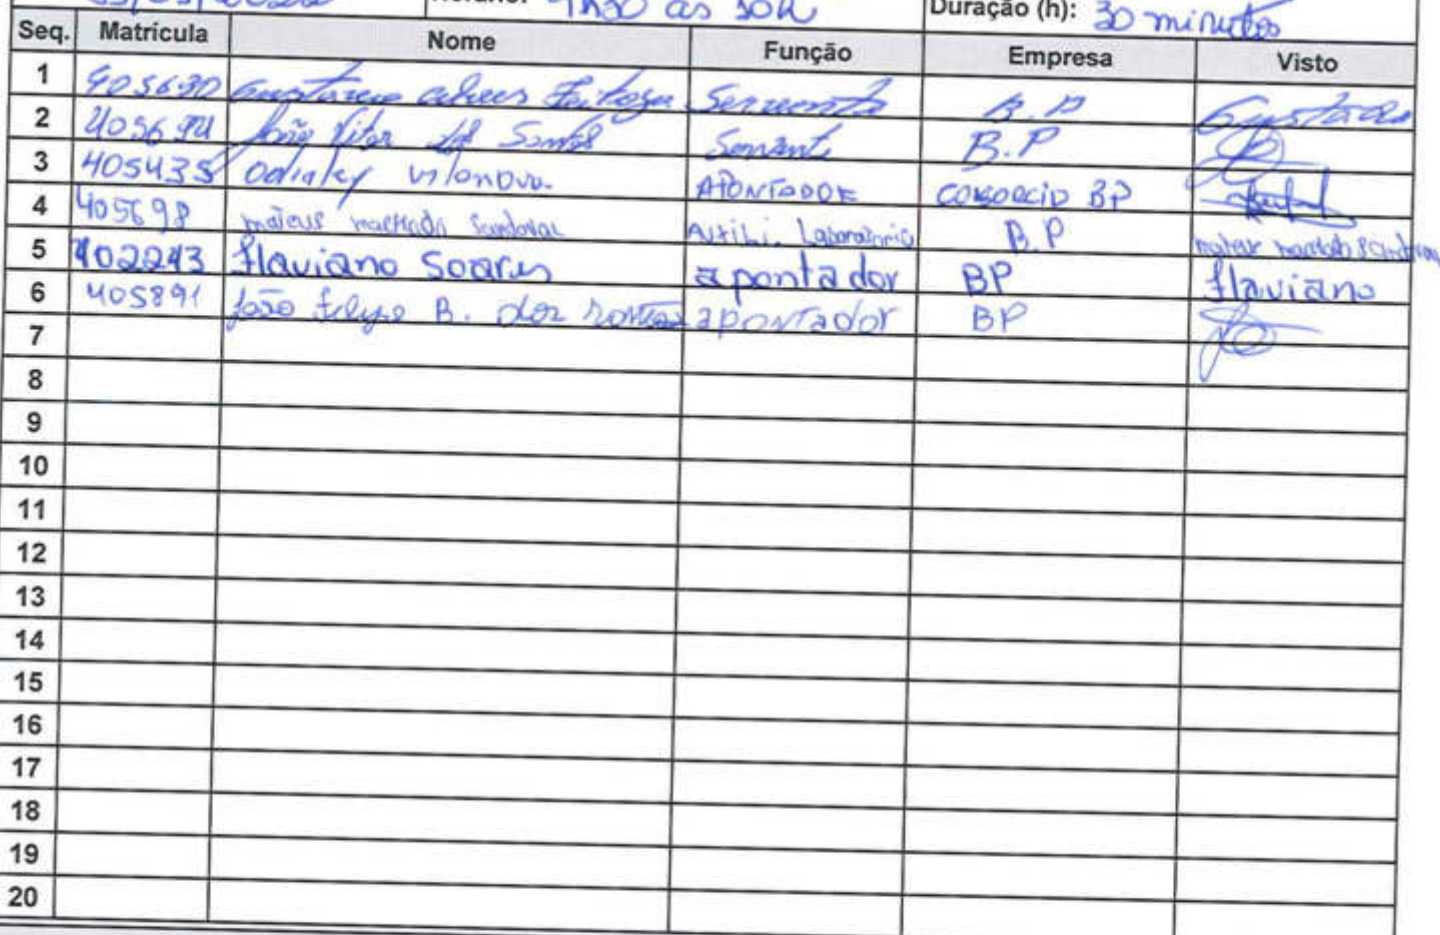 às 10h Duração (h): 30 minutos
Seq. Matrícula Nome Função Empresa Visto
1 405690 Servente B.P Gustavo
2 405694 João Vitor dos Santos Servente B.P
3 405435 vilanova. APONTADOR CONSORCIO BP
4 405698 mateus machado Sandoval B.P mateus machado Sandoval
5 402243 flaviano Soares apontador BP flaviano
6 405891 João felype B. dos santos apontador BP
7
8
9
10
11
12
13
14
15
16
17
18
19
20